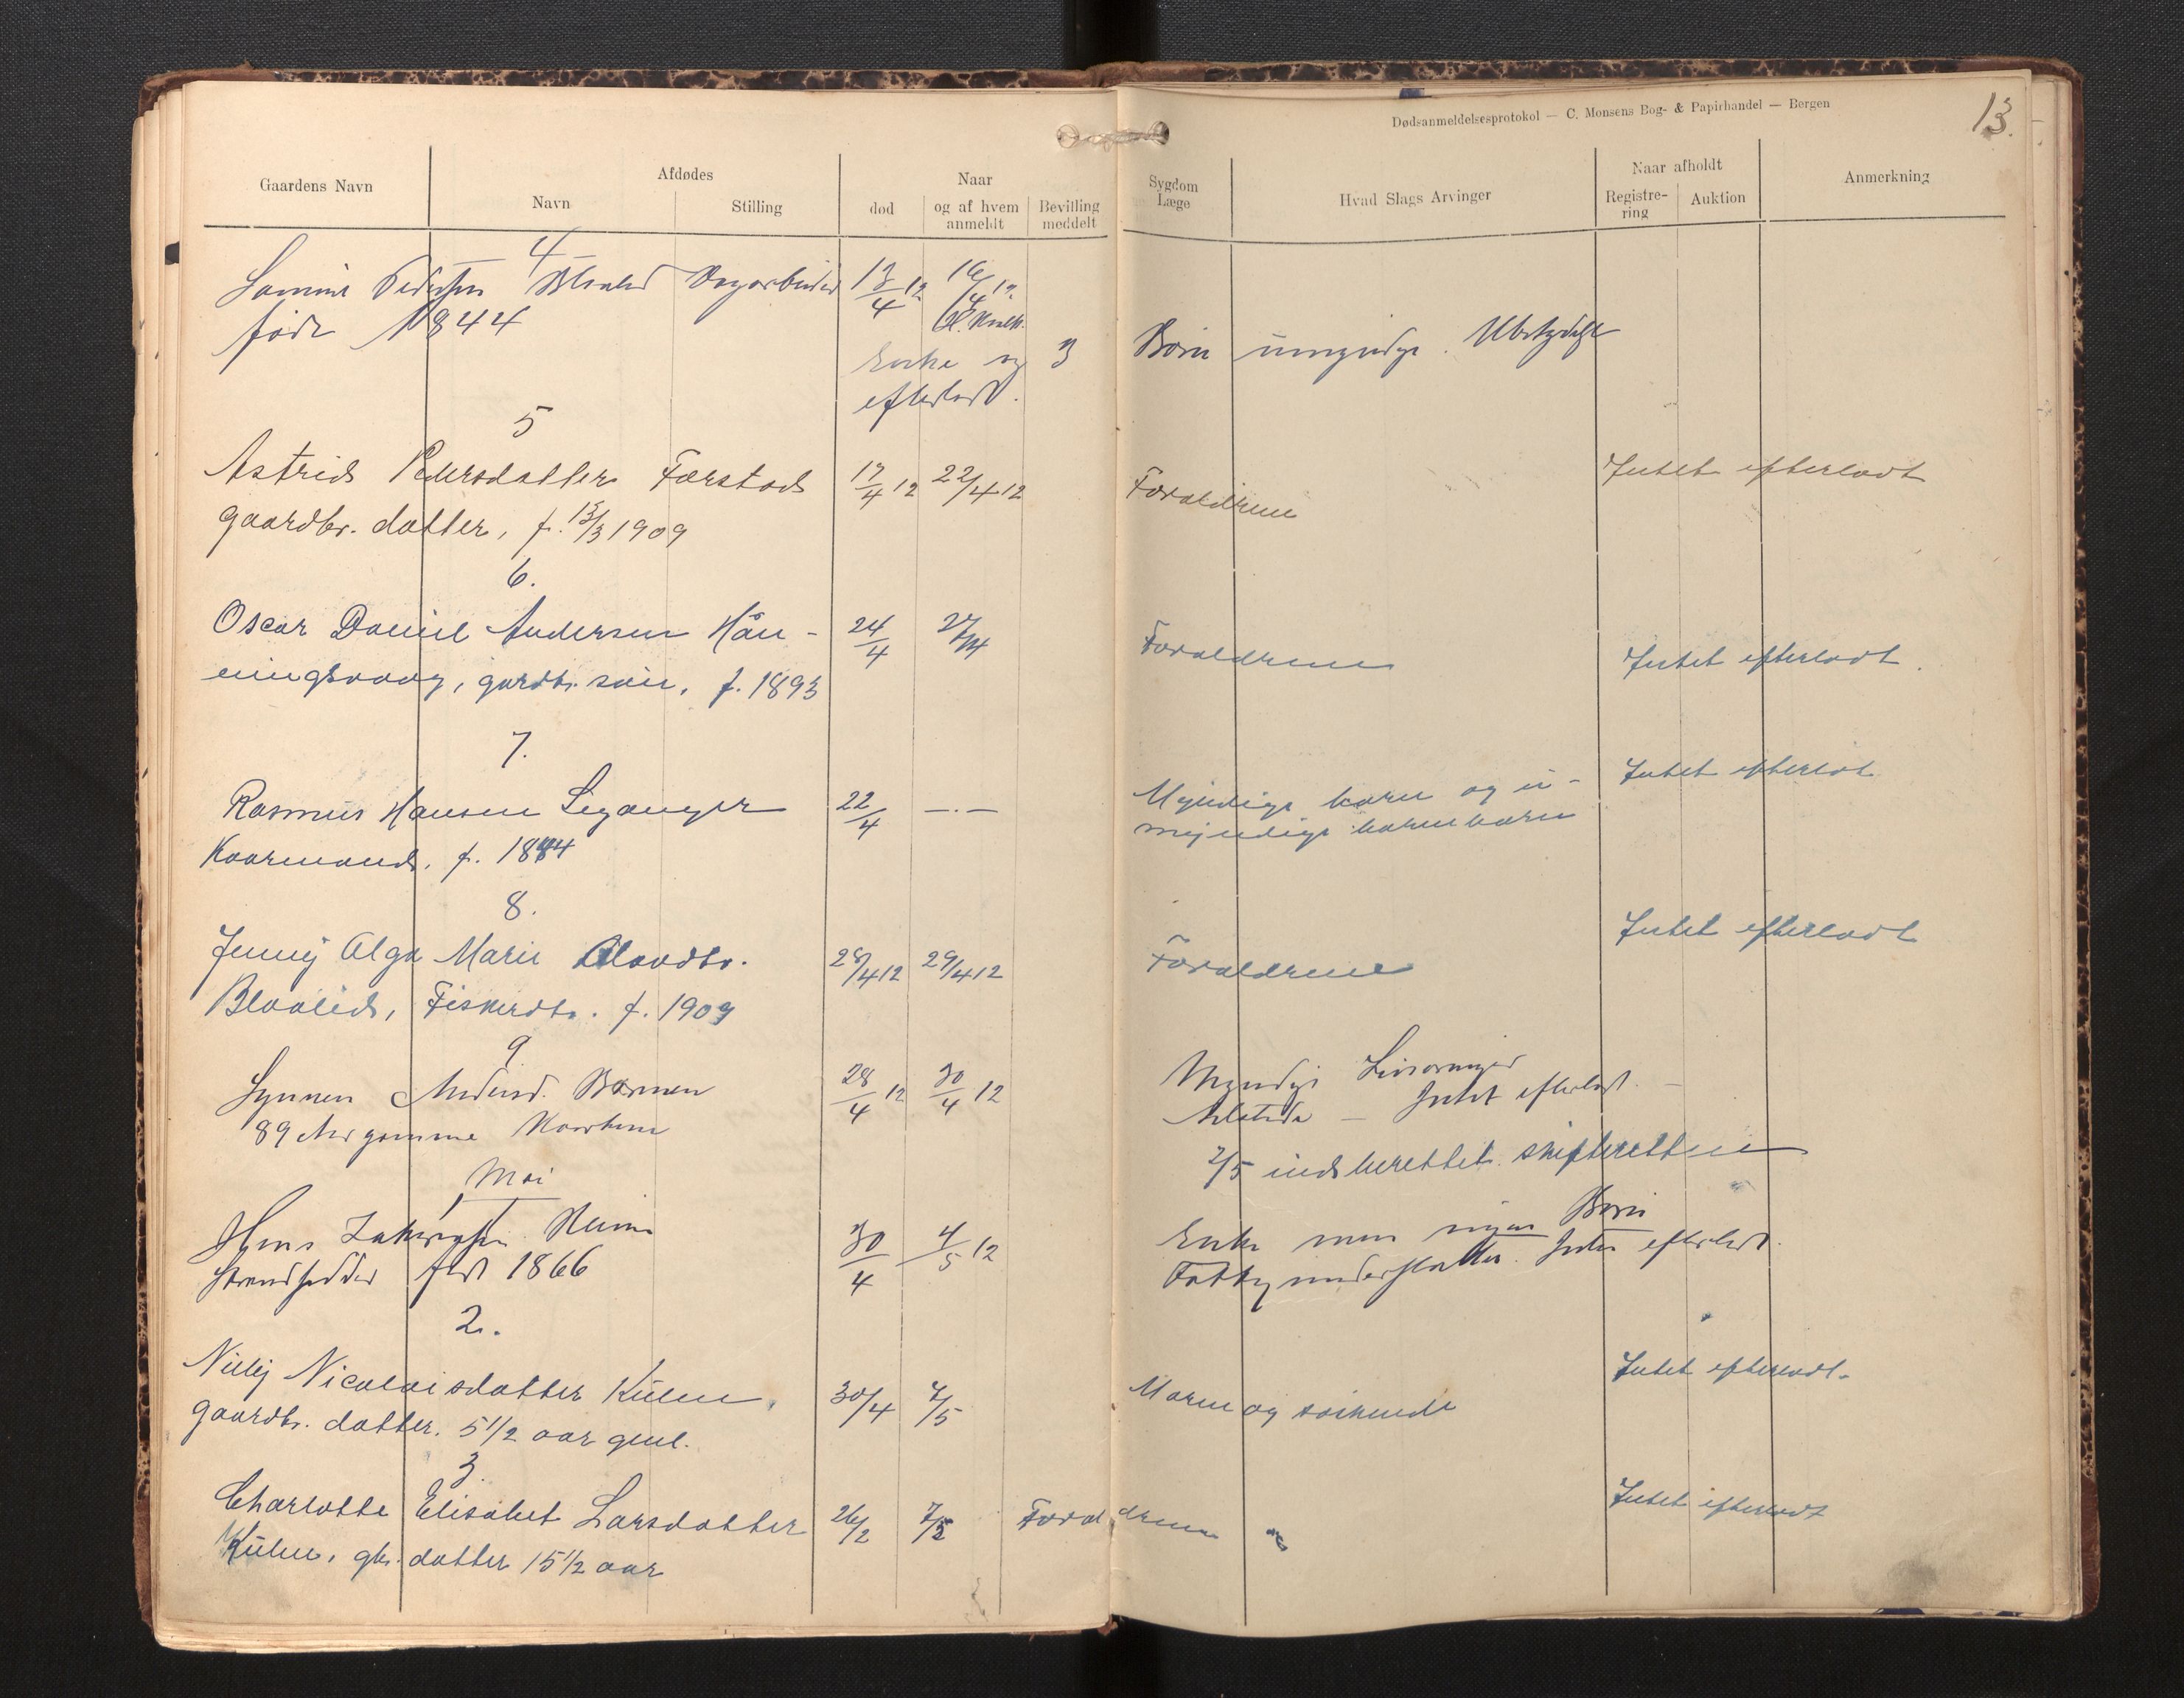 Dødsanmeldelsesprotokol — C. Monsens Bog- & Papirhandel — Bergen
13.
Gaardens Navn
Afdødes
Navn
Stilling
Naar
død
og af hvem anmeldt
Bevilling meddelt
Sygdom Læge
Hvad Slags Arvinger
Naar afholdt
Registre-ring
Auktion
Anmerkning
4
Pedersen Dagarbeider 13/4 12 16/4 12.
født 1844
Enke og 3 Børn umyndige. Ubetydeligt
efterladt.
5
Astrid Pedersdatter Færstad 17/4 12 22/4 12 Forældrene Intet efterladt
gaardbr. datter, f. 13/3 1909
6.
Oscar Daniel Andersen Hån- 24/4 27/4 Forældrene Intet efterladt.
ningsvaag, gardbr. søn, f. 1893
7.
Rasmus Hansen Leganger 22/4 —.— Myndige barn og u- Intet efterlat
Kaarmand, f. 1844 myndige barnebarn
8.
Jenny Olga Marie Olavdtr. 28/4 12 29/4 12 Forældrene Intet efterladt
Blaalid, Fiskerdtr. f. 1909
9
Synnev Andersd. Barmen 28/4 12 30/4 12 Myndige Livsarvinger
89 Aar gamme Intet efterladt.
2/5 indberettet skifteretten
Mai
1
Hans 30/4 4/5 12 Enke men ingen Børn
Strandsidder født 1866 Fattigunderstøttet. Intet efterladt.
2.
Nilly Nicolaisdatter Kulen, 30/4 7/5 Moren og søskende Intet efterladt.
gaardbr. datter. 5 1/2 aar gml.
3.
Charlotte Elisabet Larsdatter 26/2 7/5 Forældrene Intet efterladt
Kulen, gbr. datter 15 1/2 aar